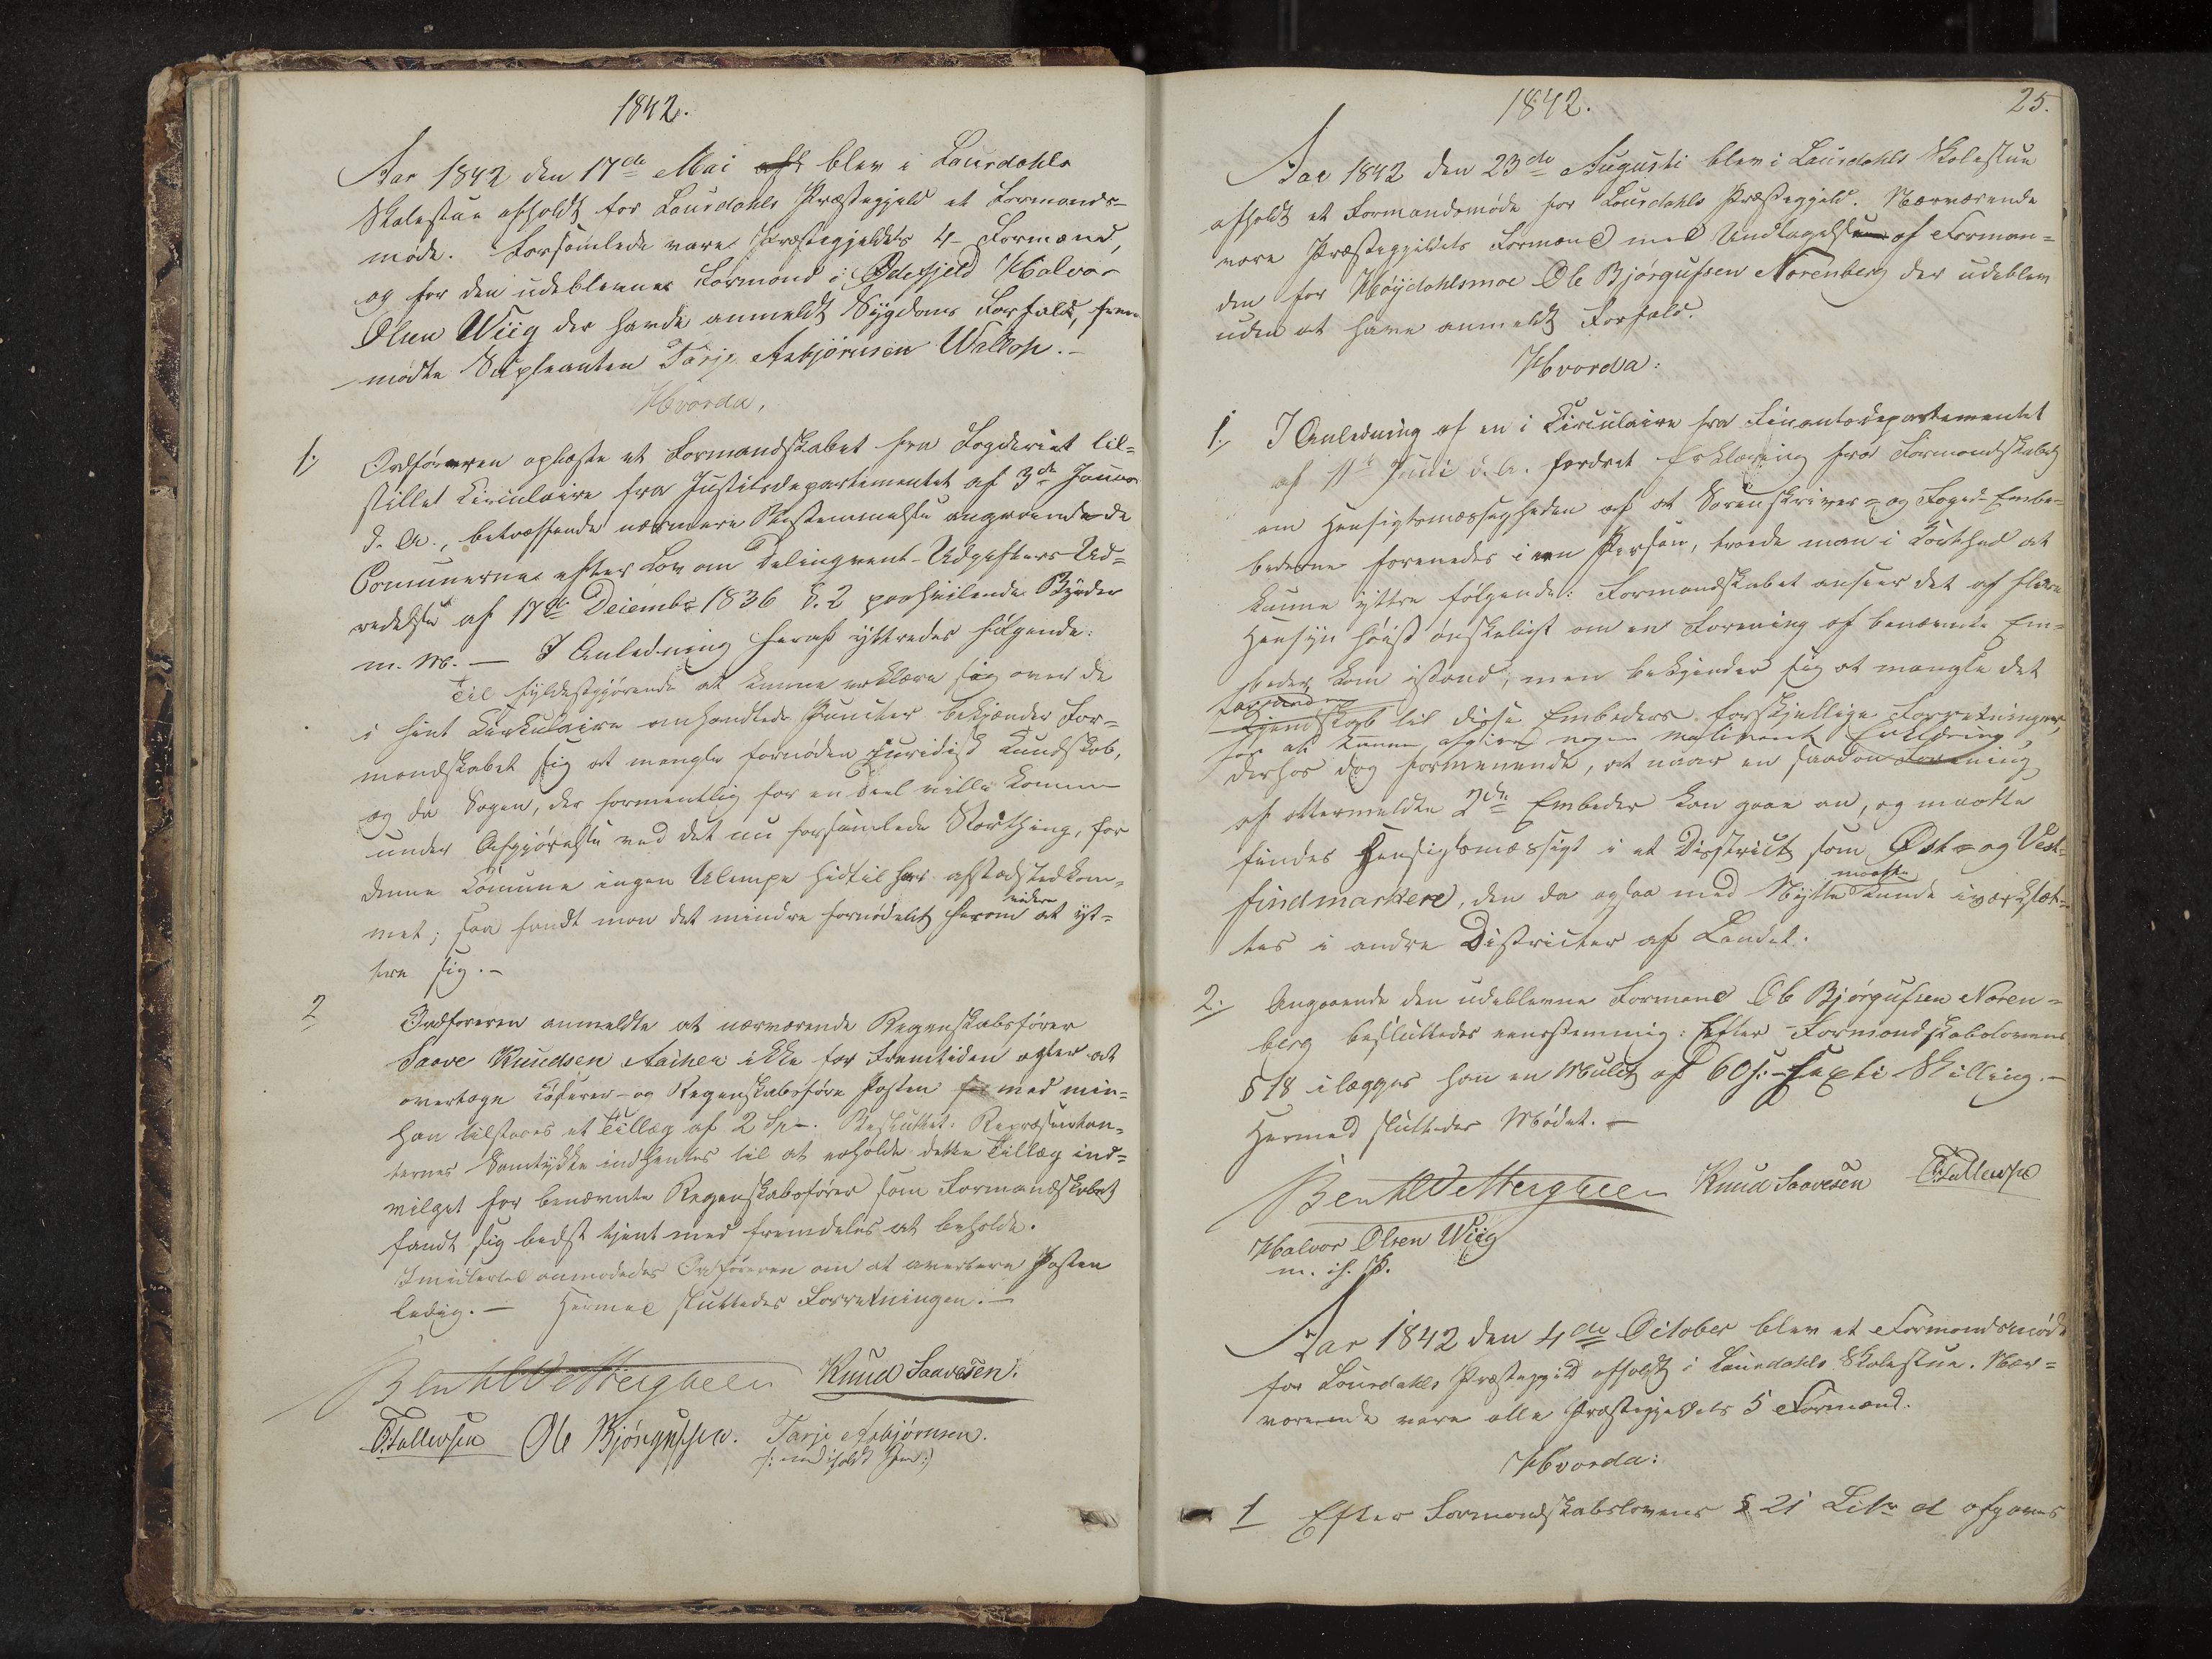 1842.
Aar 1842 den 17de Mai afh blev i Laurdahls
Skolestue afholdt for Laurdahls Præstegjeld et Formands-
møde. Forsamlede vare Præstegjeldets 4 Formænd,
og for den udeblevne Formand i Ødefjeld Halvor
Olsen Wiig der havde anmeldt Sygdoms Forfald, frem-
mødte Supleanten Tarje Asbjørnsen Walloe.-
Hvorda,
1. Ordføreren oplæste et Formandskabet fra Fogderiet til-
stillet Circulaire fra Justitsdepartementet af 3de Januar
d. A., betræffende nærmere Bestemmelse angaaende de
Comunerne efter Lov om Delinqvent-Udgifters Ud-
redelse af 17de Decembr 1836 §. 2 paahvilende Byrder
m. M. — I Anledning heraf yttredes følgende:
Til fyldestgjørende at kunne erklære sig over de
i hint Cirkulaire omhandlede Puncter bekjænder For-
mandskabet sig at mangle fornøden juridisk Kundskab,
og da Sagen, der formentlig for en Deel ville komme
under Afgjørelse ved det nu forsamlede Storthing, for
denne Comune ingen Ulempe hidtil har afstedkom-
met; saa fandt man det mindre fornødent herom videre at yt-
tre sig.-
2 Ordføreren anmeldte at nærværende Regnskabsfører
Saave Knudsen ikke for Fremtiden agter at
overtage Casserer- og Regnskabsfører Posten med min-
han tilstaaes et Tillæg af 2 Spd. Besluttet: Repræsentan-
ternes Samtykke indhentes til at erholde dette Tillæg ind-
vilget for benævnte Regnskabsfører som Formandskabet
fandt sig bedst tjent med fremdeles at beholde.
Imidlertid anmodedes Ordføreren om at avertere Posten
ledig. — Hermed sluttedes Forretningen.—
Bent Wettergreen Knud Saavesen.
T. Tallevsen Ole Bjørgufsen. Tarje Asbjørnsen.
1842. 25.
Aar 1842 den 23de Augusti blev i Laurdahls Skolestue
afholdt et Formandsmøde for Laurdahls Præstegjeld. Nærværende
vare Præstegjeldets Formænd med Undtagelse af Forman-
den for Høydahlsmoe Ole Bjørgufsen Norenberg der udeblev
uden at have anmeldt Forfald.
Hvorda:
1. I Anledning af en i Circulaire fra Finantsdepartementet
af 11te Juni d. A. fordret Erklæring fra Formandskabet
om Hensigtsmæssigheden af at Sorenskriver- og Foged-Embe-
bederne forenedes i een Person, troede man i Korthed at
kunne yttre følgende: Formandskabet anseer det af flere
Hensyn høist ønskeligt om en Forening af benævnte Em-
beder kom istand; men bekjender sig at mangle det
Kjendskab til disse Embeders forskjellige Forretninger,
for at kunne afgive nogen motiveret Erklæring,
derhos dog formenende, at naar en saadan Forening
af ottermeldte 2de Embeder kan gaae an, og maatte
findes Hensigtsmæssigt i et District som Øst- og Vest-
findmarken, den da ogsaa med Nytte maatte kunde iværksæt-
tes i andre Districter af Landet.
2. Angaaende den udeblevne Formand Ole Bjørgufsen Noren-
berg besluttedes eenstemmig: Efter Formandskabslovens
§ 18 ilægges han en Mulct af 60 s:- sexti Skilling.-
Hermed sluttedes Mødet.—
Bent Wettergreen Knud Saavesen T. Tallevsen
Halvor Olsen Wiig
m. if. P.
Aar 1842 den 4de October blev et Formandsmøde
for Laurdahls Præstegjeld afholdt i Laurdahls Skolestue. Nær-
værende vare alle Præstegjeldets 5 Formænd.
Hvorda:
1 Efter Formandskabslovens § 21 Litr d afgaves